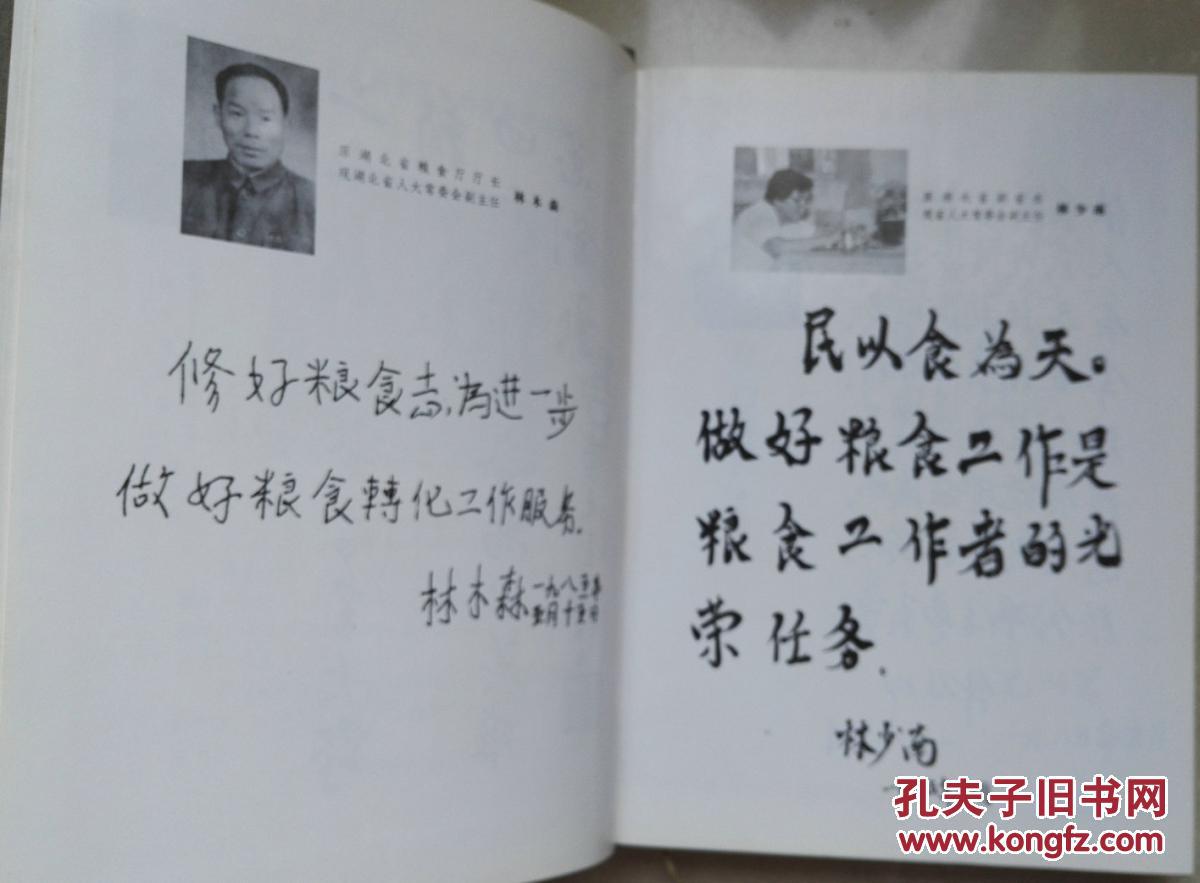 原湖北省粮食厅厅长
现湖北省人大常委会副主任
林木森
修好粮食志,為进一步
做好粮食轉化工作服务.
林木森
一九八五年
五月十五日
现省人大常委会副主任
林少南
民以食為天。
做好粮食工作是
粮食工作者的光
荣任务.
林少南
孔夫子旧书网
www.kongfz.com